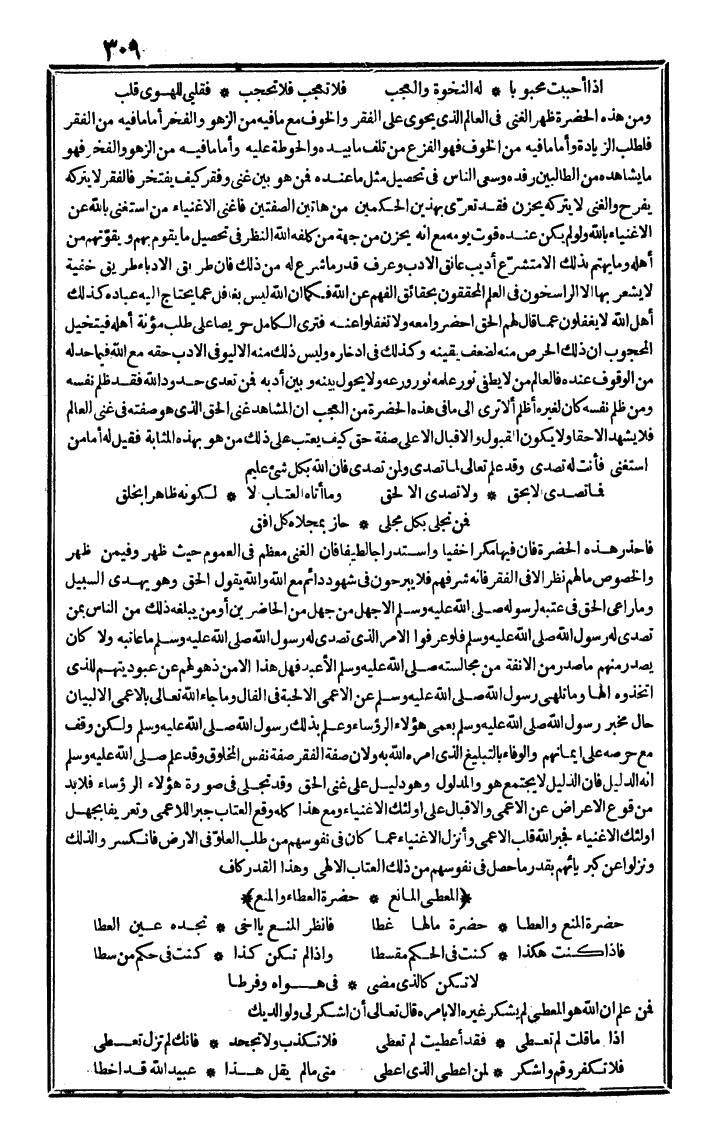 ٣٠٩
اذا أحببت محبوبا * له النخوة والعجب فلا تعجب فلا تحجب * فقلبي للهوى قلب
ومن هذه الحضرة ظهر الغنى فى العالم الذى يحوى على الفقر والخوف مع ما فيه من الزهو والفخر أما ما فيه من الفقر
فلطلب الزيادة وأما ما فيه من الخوف فهو الفزع من تلف ما بيده والحوطة عليه وأما ما فيه من الزهو والفخر فهو
ما يشاهده من الطالبين رفده وسعى الناس فى تحصيل مثل ما عنده فمن هو بين غنى وفقر كيف يفتخر فالفقر لا يتركه
يفرح والغنى لا يتركه يحزن فقد تعرّى بهذين الحكمين من هاتين الصفتين فاغنى الاغنياء من استغنى بالله عن
الاغنياء بالله ولو لم يكن عنده قوت يومه مع انه يحزن من جهة من كلفه الله النظر فى تحصيل ما يقوم بهم ويقوّتهم من
أهله وما يهتم بذلك الا متشرّع أديب عانق الادب وعرف قدر ما شرع له من ذلك فان طريق الادباء طريق خفية
لا يشعر بها الا الراسخون فى العلم المحققون بحقائق الفهم عن الله فكما ان الله ليس بغافل عما يحتاج اليه عباده كذلك
أهل الله لا يغفلون عما قال لهم الحق احضروا معه ولا تغفلوا عنه فترى الكامل حريصا على طلب مؤنة أهله فيتخيل
المحجوب ان ذلك الحرص منه لضعف يقينه وكذلك فى ادخاره وليس ذلك منه الا ليوفى الادب حقه مع الله فيما حد له
من الوقوف عنده فالعالم من لا يطفئ نور علمه نور ورعه ولا يحول بينه وبين أدبه فمن تعدى حدود الله فقد ظلم نفسه
ومن ظلم نفسه كان لغيره أظلم ألا ترى الى ما فى هذه الحضرة من العجب ان المشاهد غنى الحق الذى هو صفته فى غنى العالم
فلا يشهد الا حقا ولا يكون القبول والاقبال الا على صفة حق كيف يعتب على ذلك من هو بهذه المثابة فقيل له أما من
استغنى فأنت له تصدى وقد علم تعالى لما تصدى ولمن تصدى فان الله بكل شئ عليم
فما تصدى لا بحق * ولا تصدى الا لحق وما أتاه العتاب لا * لكونه ظاهرا بخلق
فمن تجلى بكل مجلى * حاز بمجلاه كل افق
فاحذر هذه الحضرة فان فيها مكرا خفيا واستدراجا لطيفا فان الغنى معظم فى العموم حيث ظهر وفيمن ظهر
والخصوص ما لهم نظر الا فى الفقر فانه شرفهم فلا يبرحون فى شهود دائم مع الله والله يقول الحق وهو يهدى السبيل
وما راعى الحق فى عتبه لرسوله صلى الله عليه وسلم الا جهل من جهل من الحاضرين أو من يبلغه ذلك من الناس بمن
تصدى له رسول الله صلى الله عليه وسلم فلو عرفوا الامر الذى تصدى له رسول الله صلى الله عليه وسلم ما عاتبه ولا كان
يصدر منهم ما صدر من الانفة من مجالسته صلى الله عليه وسلم الأعبد فهل هذا الا من ذهولهم عن عبوديتهم للذى
اتخذوه الها وما تلهى رسول الله صلى الله عليه وسلم عن الاعمى الا لحبة فى الفال وما جاء الله تعالى بالاعمى الا لبيان
حال مخبر رسول الله صلى الله عليه وسلم بعمى هؤلاء الرؤساء وعلم بذلك رسول الله صلى الله عليه وسلم ولكن وقف
مع حرصه على ايمانهم والوفاء بالتبليغ الذى امره الله به ولان صفة الفقر صفة نفس المخلوق وقد علم صلى الله عليه وسلم
انه الدليل فان الدليل لا يجتمع هو والمدلول وهو دليل على غنى الحق وقد تجلى فى صورة هؤلاء الرؤساء فلا بد
من قوع الاعراض عن الاعمى والاقبال على اولئك الاغنياء ومع هذا كله وقع العتاب جبرا للاعمى وتعريفا بجهل
اولئك الاغنياء فجبر الله قلب الاعمى وأنزل الاغنياء عما كان فى نفوسهم من طلب العلوّ فى الارض فانكسر والذلك
ونزلوا عن كبريائهم بقدر ما حصل فى نفوسهم من ذلك العتاب الالهى وهذا القدر كاف
﴿المعطى المانع * حضرة العطاء والمنع﴾
حضرة المنع والعطا * حضرة مالها غطا فانظر المنع يا اخى * تجده عين العطا
فاذا كنت هكذا * كنت فى الحكم مقسطا واذا لم تكن كذا * كنت فى حكم من سطا
لا تكن كالذى مضى * فى هواه وفرطا
فمن علم ان الله هو المعطى لم يشكر غيره الا بامره قال تعالى أن اشكر لى ولوالديك
اذا ما قلت لم تعطى * فقد أعطيت لم تعطى فلا تكذب ولا تجحد * فانك لم تزل تعطى
فلا تكفر وقم واشكر * لمن اعطى الذى اعطى متى مالم يقل هذا * عبيد الله قد اخطا